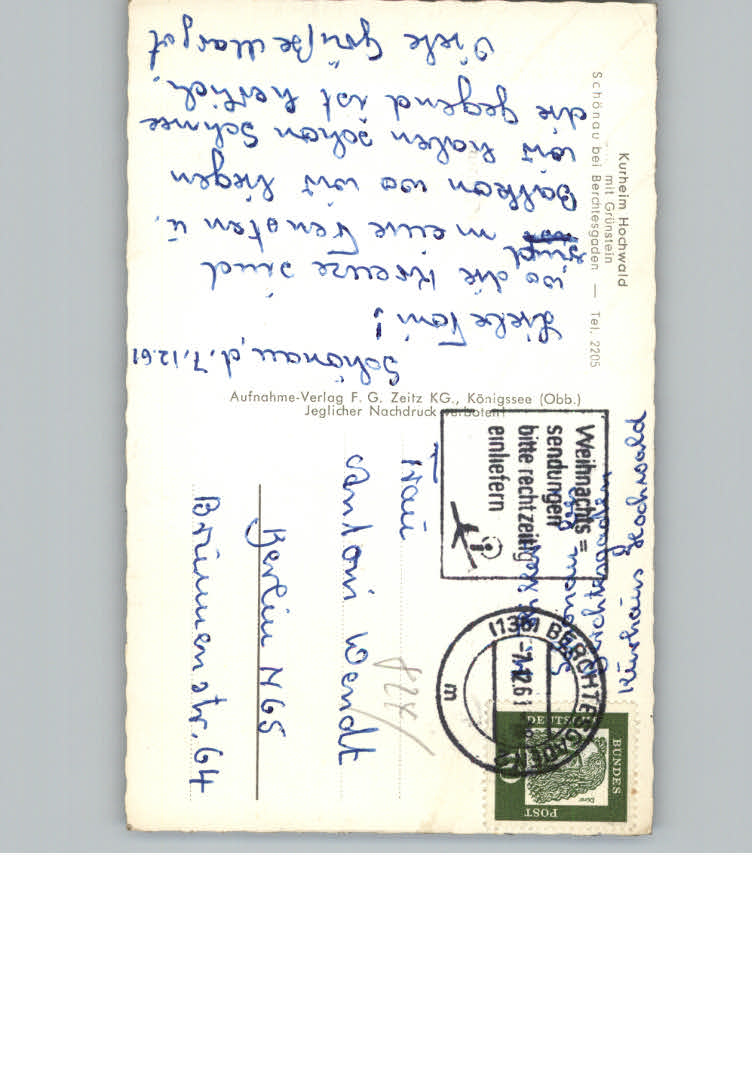 Kurheim Hochwald
mit Grünstein
Schönau bei Berchtesgaden — Tel. 2205
Schönau, d. 7.12.61
Liebe Toni!
wo die Kreuze sind
sind meine Fenster u.
Balkon wo wir liegen
wir haben schon Schnee
die gegend ist herlich.
Viele Grüße Margot
Aufnahme-Verlag F. G. Zeitz KG., Königssee (Obb.)
Jeglicher Nachdruck verboten!
Kurhaus Hochwald
Berchtesgaden
Schönau
Weihnachts=
sendungen
bitte rechtzeitig
einliefern
(13b) BERCHTESGADEN
-7.12.61
m
DEUTSCHE
BUNDES
POST
Dürer
Frau
Antoni Wendt
424
Berlin N 65
Brunnenstr. 64